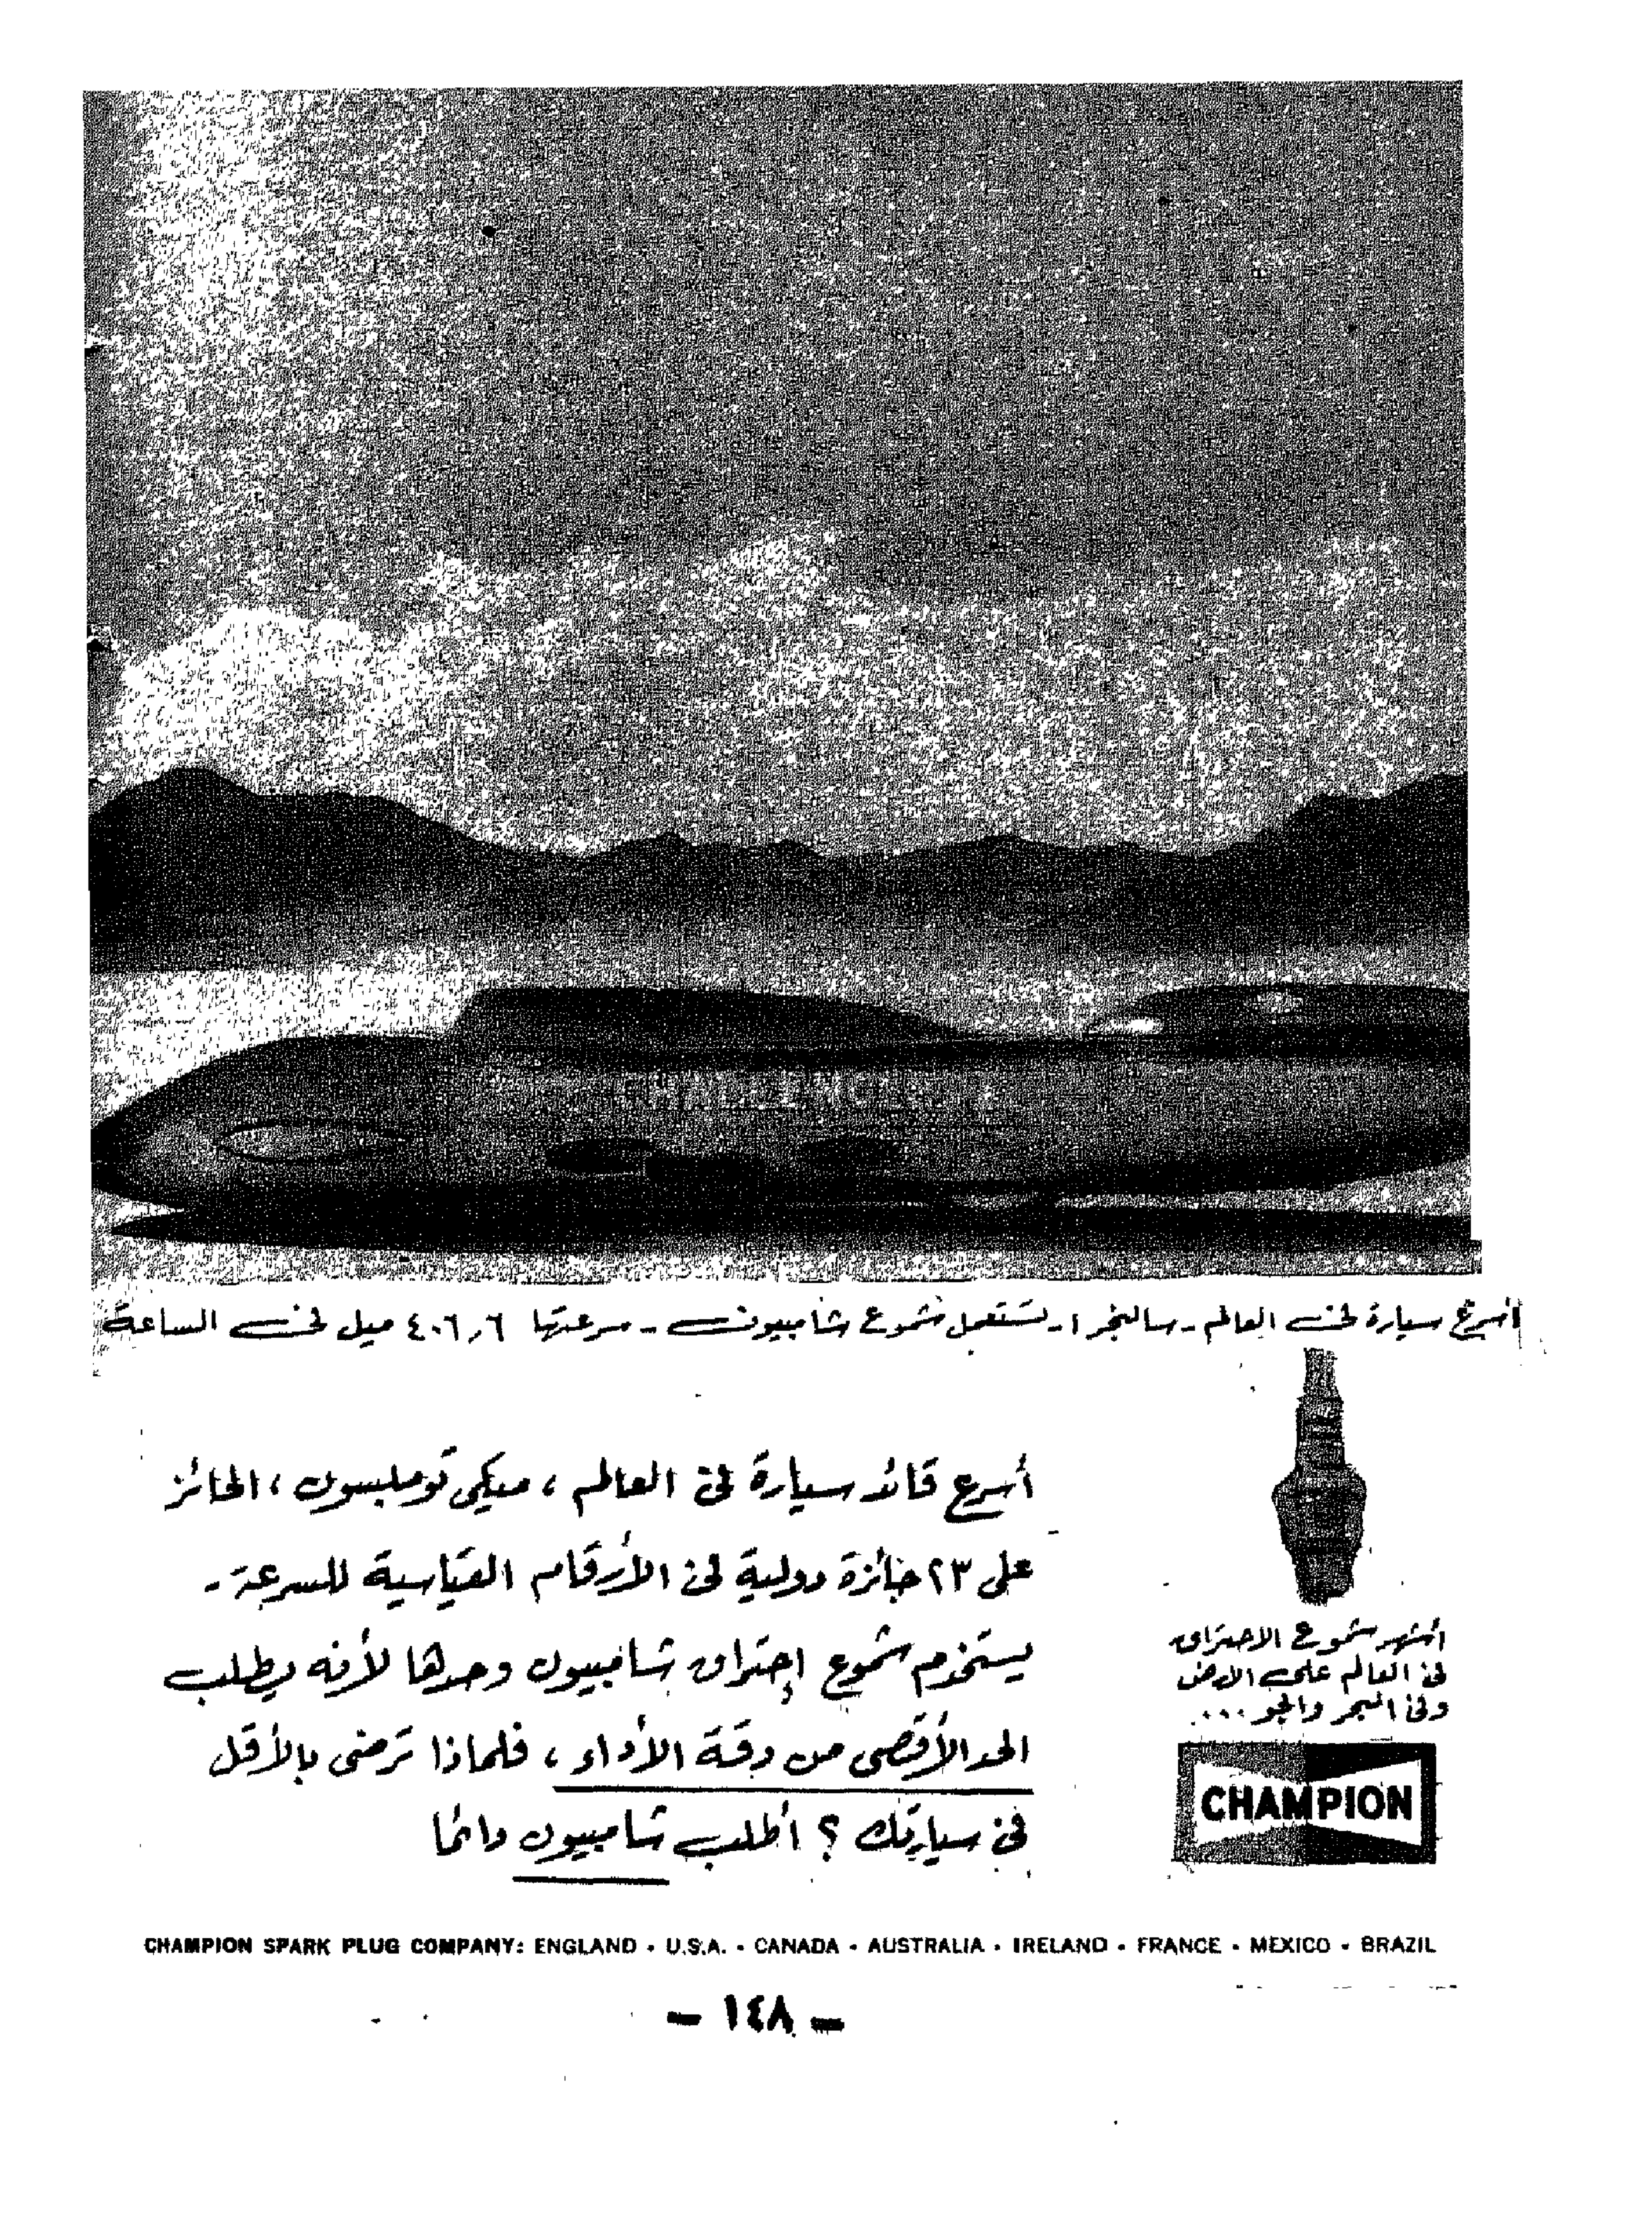 CHALLENGER
أسرع سيارة في العالم - سالنجر ١ - تستعمل شموع شامبيون - سرعتها ٤٠٦,٦ ميل في الساعة
أسرع قائد سيارة في العالم ، ميكي تومبسون ، الحائز
على ٢٣ جائزة دولية في الأرقام القياسية للسرعة -
يستخدم شموع إحتراق شامبيون وحدها لأنه يطلب
الحد الأقصى من دقة الأداء ، فلماذا ترضى بالأقل
في سيارتك ؟ أطلب شامبيون دائما
أشهر شموع الاحتراق
في العالم على الارض
وفي البحر والجو ....
CHAMPION
CHAMPION SPARK PLUG COMPANY: ENGLAND • U.S.A. • CANADA • AUSTRALIA • IRELAND • FRANCE • MEXICO • BRAZIL
- ١٤٨ -